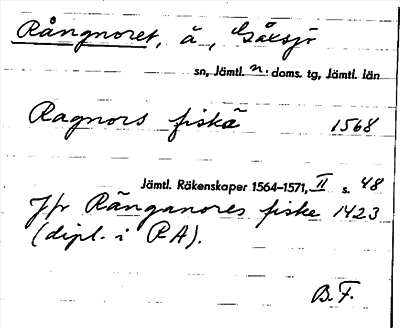 Rångnoret, å, Gåxsjö
sn, Jämtl. n. doms. tg, Jämtl. län
Ragnors fiskä 1568
Jämtl. Räkenskaper 1564–1571, II s. 48
Jfr Rånganores fiske 1423
(dipl. i RA).
B.F.